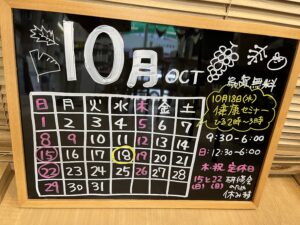 10月 OCT
日 月 火 水 木 金 土
1 2 3 4 5 6 7
8 9 10 11 12 13 14
15 16 17 18 19 20 21
22 23 24 25 26 27 28
29 30 31
無料
10月18日(水)
健康セミナー
ひる2時~3時
9:30-6:00
日:12:30-6:00
木・祝 定休日
15と22 研修会
(日)(日) のため
休み